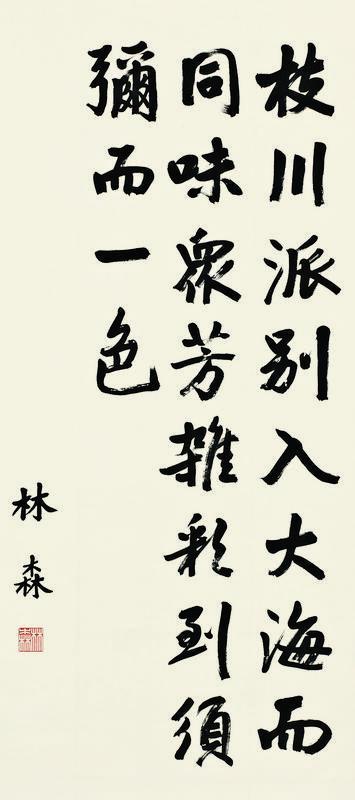 枝川派别入大海而
同味眾芳雜彩到須
彌而一色
林森